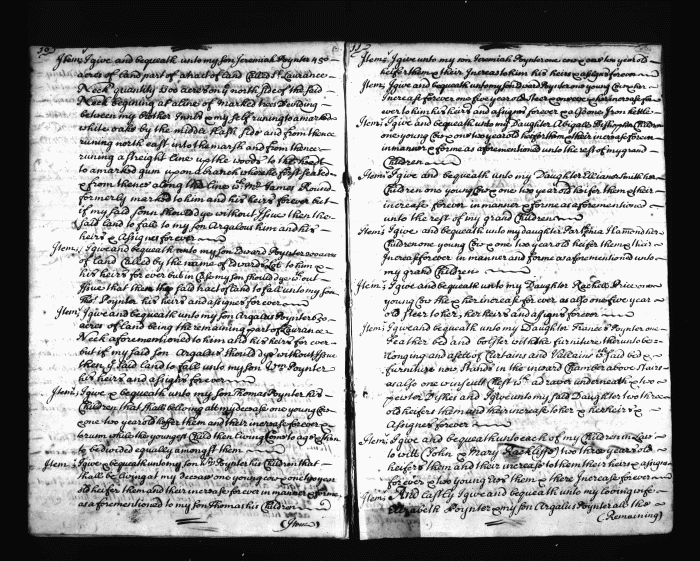 10
Item, I give and bequeath unto my son Jeremiah Poynter 450
acres of land part of a tract of land Called St. Laurance
Neck quantity 200 acres 50 ny north side of the said
Neck begining at a line of marked trees deviding
between my Brother and my self runing to a marked
white oake by the middle slash side and from thence
runing north east into the marsh and from thence
runing a streight line up the woods to the head
to a marked gum upon a branch where he first seated
& from thence along the line wth Mr. James Round
formerly marked to him and his heirs forever but
if my said sonn should dye without Issue then the
said land to fall to my son Argalus him and his
heirs & Assignes forever
Item, I give and bequeath unto my son Edward Poynter 200 acres
of land Called by the name of Edwards Lot to him &
his heirs for ever but in Case my son should dye without
Issue that then the said tract of land to fall unto my son
Tho: Poynter his heirs and assignes forever
Item, I give and bequeath unto my son Argalus Poynter 250
acres of land being the remaining part of Laurance
Neck aforementioned to him and his heirs for ever
but if my said son Argalus should dye without Issue
then ye said land to fall unto my son Wm Poynter
his heirs and assigns forever
Item, I give & bequeath unto my son Thomas Poynter his
Children that shall be living at my decease one young Cow
& one two year old heifer them and their increase forever
untill the youngest Child then living Come to age & then
to be divided equally amongst them
Item, I give & bequeath unto my son Wm Poynter his Children that
shall be living at my decease one young cow & one two year
old heifer them and their increase forever in manner & forme
as aforementioned to my son Thomas his Children
(Item)
11
Item, I give unto my son Jeremiah Poynter one cow & one two year old
heifer them & their Increase to him his heirs & assigns forever
Item, I give and bequeath unto my son Edward Poynter one young Cow & her
Increase forever one five year old steer & one ewe & her increase for
ever to him his heirs and assignes forever & also one Iron kettle
Item, I give and bequeath unto my Daughter Abigall Bishop his Children
one young Cow & one two year old heifer them & their increase forever
in manner & forme as aforementioned unto the rest of my grand
Children
Item, I give and bequeath unto my Daughter Smith her
Children one young Cow & one two year old heifer them & their
increase forever in manner and forme as aforementioned
unto the rest of my grand Children
Item, I give and bequeath unto my daughter Hamond her
Children one young Cow & one two year old heifer them & their
Increase forever in manner and forme as aforementioned unto
my grand Children
Item, I give and bequeath unto my Daughter Rachell Price one
young Cow the & her increase for ever as also one five year
old steer to her, her heirs and assigns forever
Item, I give and bequeath unto my Daughter Frances Poynter one
Feather bed and bolster with the furniture thereunto be-
longing and a sett of Curtains and Vallains wch said bed &
furniture now stands in the inward Chamber above stairs
as also one Chest wth a drawer underneath & two
pewter Dishes and I give unto my said Daughter two three year
old heifers them and their increase to her & her heirs &
Assignes forever
Item, I give and bequeath unto each of my Children in Law
to witt (John & Mary Rackliffe) two three years old
heifers them and their increase to them their heirs & assigns
forever two young Cows them & there Increase forever
Item, And lastly I give and bequeath unto my loving wife
Elizabeth Poynter & my son Argalus Poynter all the
(Remaining)